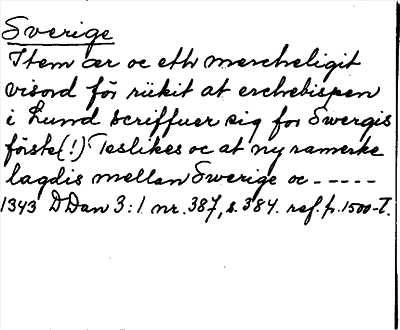 Sverige
Item ær oc eth mercheligit
visord för riikit at erchebispen
i Lund scriffuer sig for Swergis
förste (!) Teslikes oc at ny ramerke
lagdis mellan Swerige oc -----
1343 DDan 3:1. nr. 387, s. 384. ref. p. 1500-T.